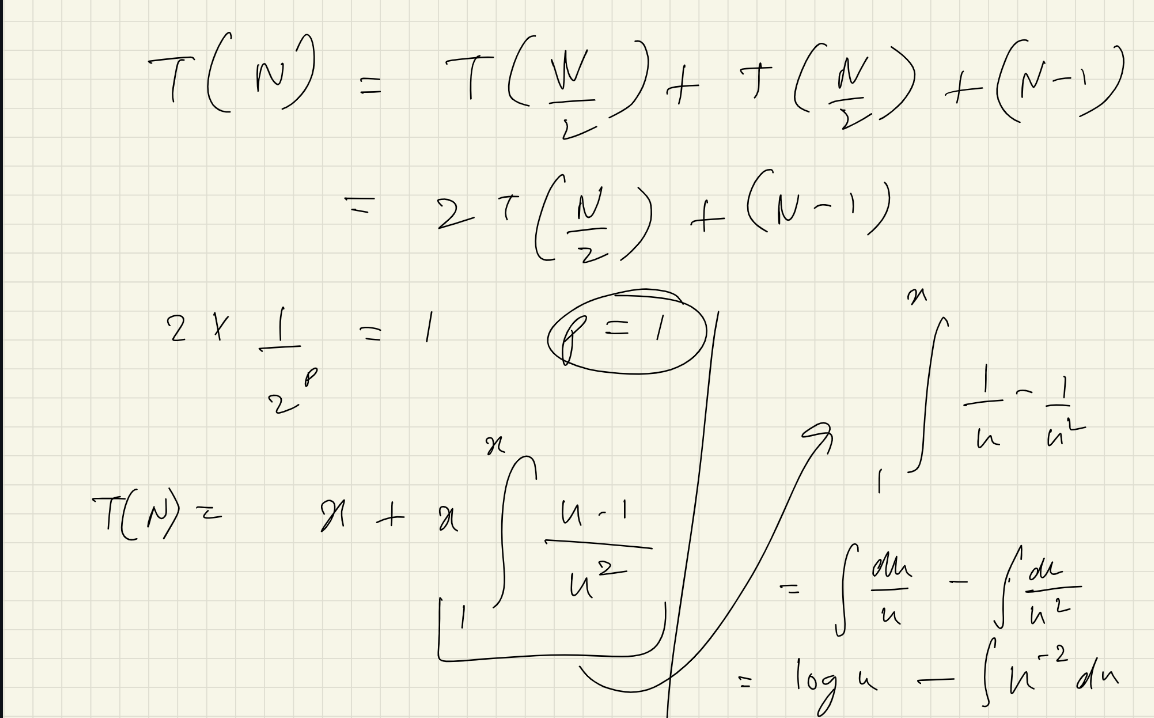 T(N) = T(N/2) + T(N/2) + (N-1)
= 2T(N/2) + (N-1)
2 × 1/2^p = 1 p = 1
T(N) = x + x ∫_1^x (u-1)/u^2
∫_1^x 1/u - 1/u^2
= ∫ du/u - ∫ du/u^2
= log u - ∫ u^-2 du